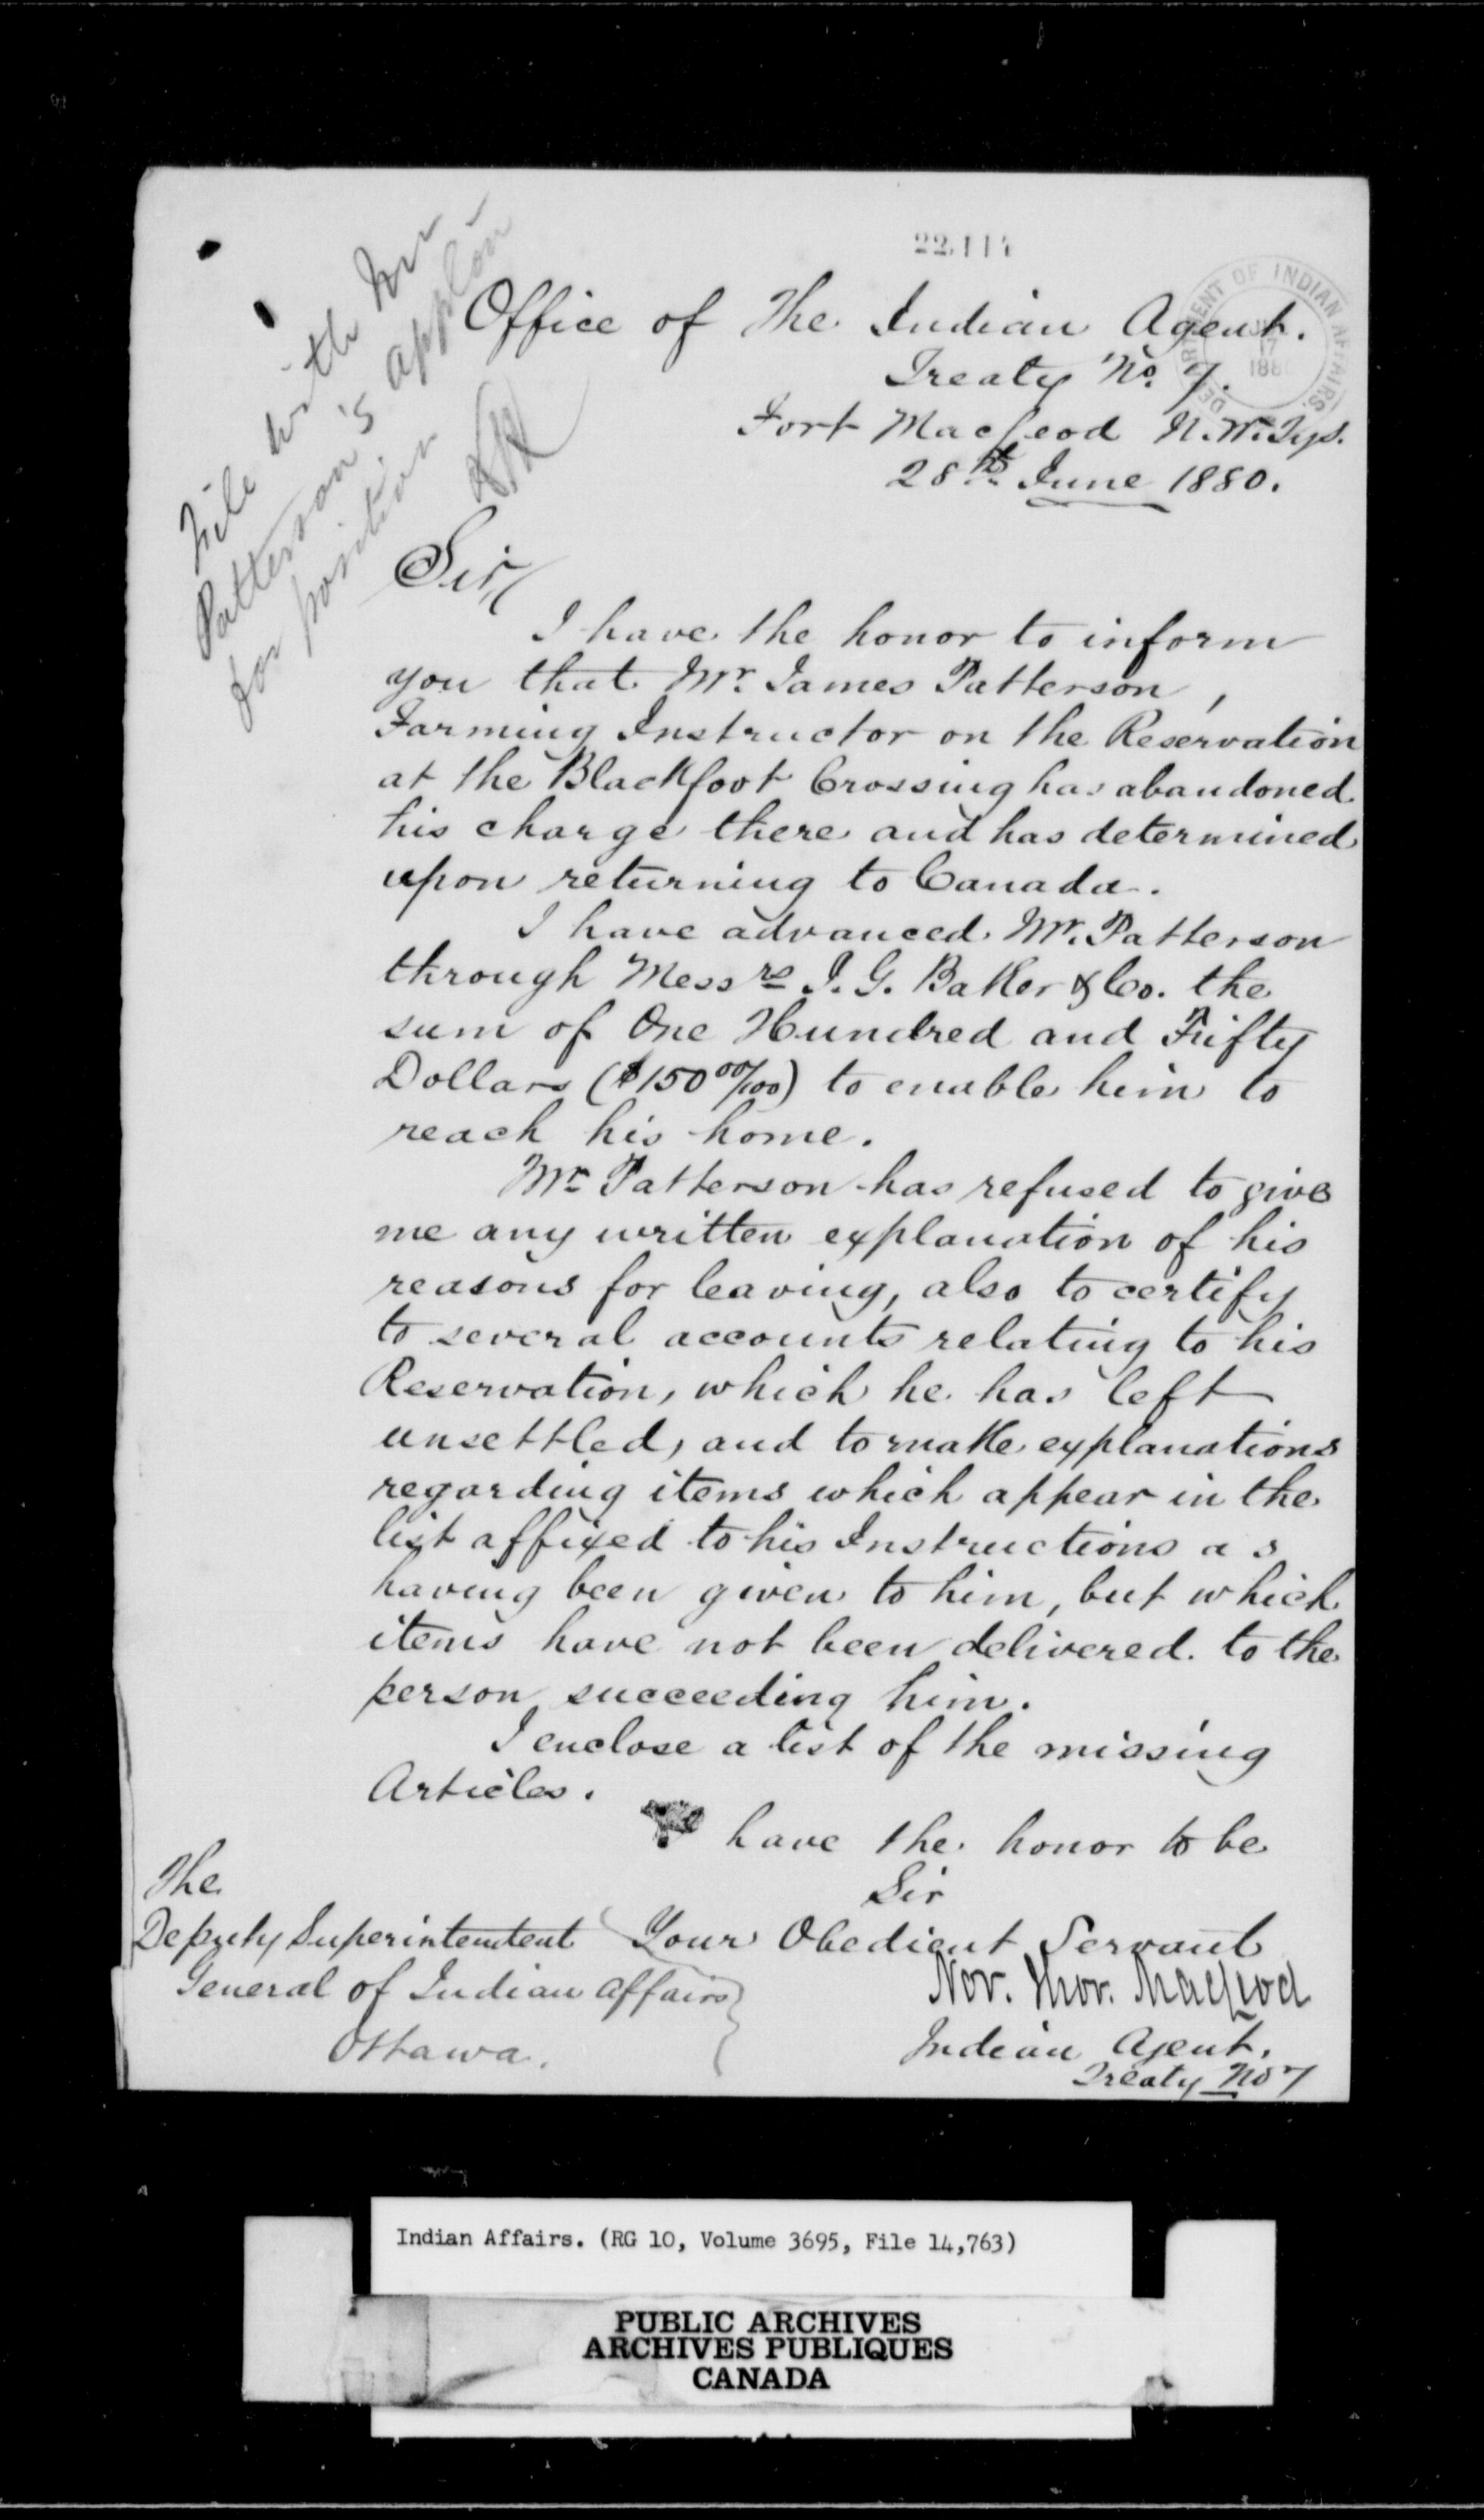 22,111
DEPARTMENT OF INDIAN AFFAIRS.
17
188
File with Mr
Patterson's applon
for position
Office of The Indian Agent.
Treaty No. 7.
Fort Macleod N.W. Tys.
28th June 1880.
Sir,
I have the honor to inform
you that Mr. James Patterson,
Farming Instructor on the Reservation
at the Blackfoot Crossing has abandoned
his charge there and has determined
upon returning to Canada.
I have advanced Mr. Patterson
through Messrs I. G. Baker & Co. the
sum of One Hundred and Fifty
Dollars ($150 00/100) to enable him to
reach his home.
Mr Patterson has refused to give
me any written explanation of his
reasons for leaving, also to certify
to several accounts relating to his
Reservation, which he has left
unsettled, and to make explanations
regarding items which appear in the
list affixed to his Instructions as
having been given to him, but which
items have not been delivered to the
person succeeding him.
I enclose a list of the missing
Articles.
have the honor to be
Sir
Your Obedient Servant
Nor. Thos. Macleod
Indian Agent,
Treaty No 7
The
Deputy Superintendent
General of Indian Affairs
Ottawa.
Indian Affairs. (RG 10, Volume 3695, File 14,763)
PUBLIC ARCHIVES
ARCHIVES PUBLIQUES
CANADA